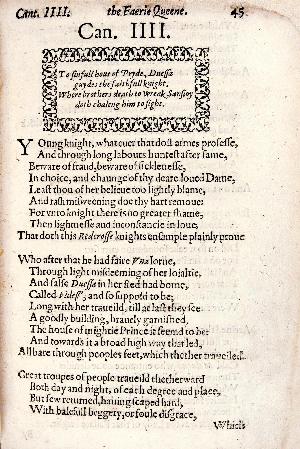 Cant. IIII. the Faerie Queene. 45
Can. IIII.
To sinfull hous of Pryde, Duessa
guydes the faithfull knight,
Where brothers death to wreak Sansjoy
doth chaleng him to fight.
YOung knight, what euer that dost armes professe,
And through long labours huntest after fame,
Beware of fraud, beware of ficklenesse,
In choice, and change of thy deare loued Dame,
Least thou of her beleue too lightly blame,
And rash misweening doe thy hart remoue:
For vnto knight there is no greater shame,
Then lightnesse and inconstancie in loue,
That doth this Redcrosse knights ensample plainly proue
Who after that he had faire Vna lorne,
Through light misdeeming of her loialtie,
And false Duessa in her sted had borne,
Called Fidess', and so supposd to be;
Long with her traueild, till at last they see
A goodly building, brauely garnished,
The house of mightie Prince it seemd to be:
And towards it a broad high way that led,
All bare through peoples feet, which thether traueiled.
Great troupes of people traueild thetherward
Both day and night, of each degree and place,
But few returned, hauing scaped hard,
With balefull beggery, or foule disgrace,
Which